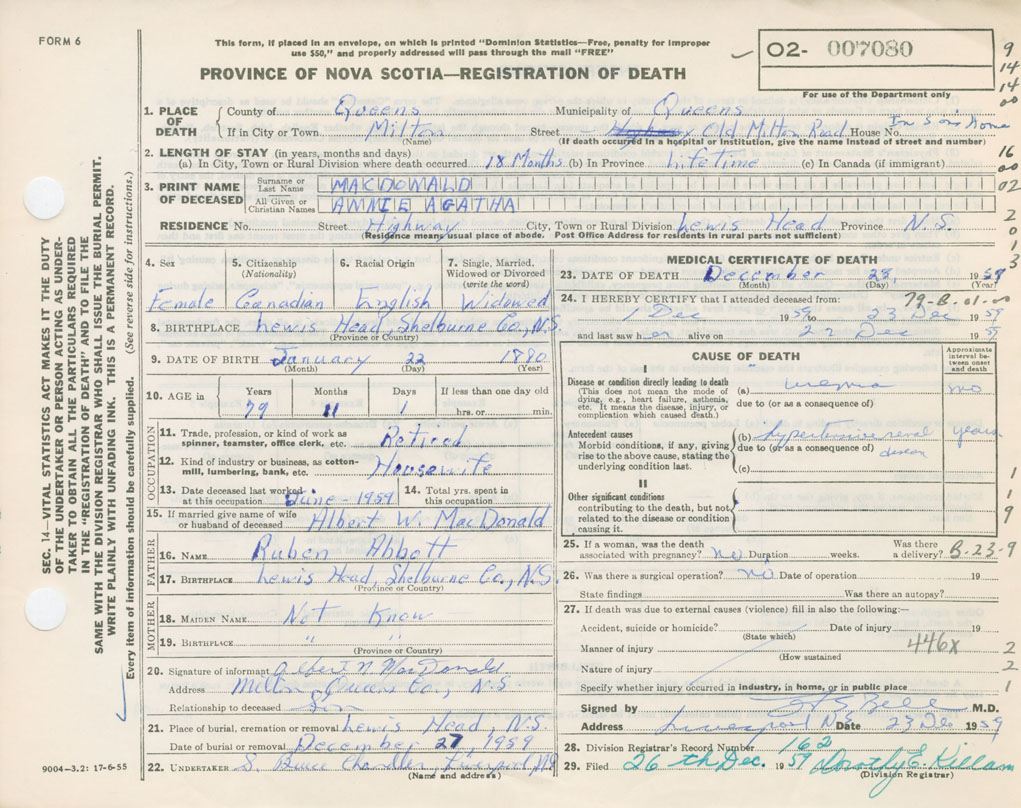 FORM 6
This form, if placed in an envelope, on which is printed "Dominion Statistics—Free, penalty for improper
use $50," and properly addressed will pass through the mail "FREE"
PROVINCE OF NOVA SCOTIA—REGISTRATION OF DEATH
02- 007080
For use of the Department only
9
14
14
00
16
00
02
2
0
1
3
SEC. 14—VITAL STATISTICS ACT MAKES IT THE DUTY
OF THE UNDERTAKER OR PERSON ACTING AS UNDER-
TAKER TO OBTAIN ALL THE PARTICULARS REQUIRED
IN THE "REGISTRATION OF DEATH" AND TO FILE THE
SAME WITH THE DIVISION REGISTRAR WHO SHALL ISSUE THE BURIAL PERMIT.
WRITE PLAINLY WITH UNFADING INK. THIS IS A PERMANENT RECORD.
Every item of information should be carefully supplied. (See reverse side for instructions.)
1. PLACE OF DEATH County of Queens Municipality of Queens
If in City or Town Milton Street Old Milton Road House No. In son's home
(Name) (If death occurred in a hospital or institution, give the name instead of street and number)
2. LENGTH OF STAY (in years, months and days)
(a) In City, Town or Rural Division where death occurred 18 Months (b) In Province Lifetime (c) In Canada (if immigrant)
3. PRINT NAME OF DECEASED Surname or Last Name MACDONALD
All Given or Christian Names ANNIE AGATHA
RESIDENCE No. Street Highway City, Town or Rural Division Lewis Head Province N.S.
(Residence means usual place of abode. Post Office Address for residents in rural parts not sufficient)
4. Sex 5. Citizenship (Nationality) 6. Racial Origin 7. Single, Married, Widowed or Divorced (write the word)
Female Canadian English Widowed
8. BIRTHPLACE Lewis Head, Shelburne Co., N.S.
(Province or Country)
9. DATE OF BIRTH January 22 1880
(Month) (Day) (Year)
10. AGE in Years Months Days If less than one day old
79 11 1 hrs. or min.
OCCUPATION
11. Trade, profession, or kind of work as spinner, teamster, office clerk, etc. Retired
12. Kind of industry or business, as cotton-mill, lumbering, bank, etc. Housewife
13. Date deceased last worked at this occupation June - 1959 14. Total yrs. spent in this occupation
15. If married give name of wife or husband of deceased Albert W. MacDonald
FATHER
16. NAME Ruben Abbott
17. BIRTHPLACE Lewis Head, Shelburne Co., N.S.
(Province or Country)
MOTHER
18. MAIDEN NAME Not Know
19. BIRTHPLACE " "
(Province or Country)
20. Signature of informant Albert N. MacDonald
Address Milton Queens Co., N.S
Relationship to deceased Son
21. Place of burial, cremation or removal Lewis Head, N.S.
Date of burial or removal December 27, 1959
22. UNDERTAKER S. Bruce Chandler Liverpool, NS
(Name and address)
9004-3.2: 17-6-55
MEDICAL CERTIFICATE OF DEATH
23. DATE OF DEATH December 23 1959
(Month) (Day) (Year)
24. I HEREBY CERTIFY that I attended deceased from: 79-B.01-00
1 Dec 1959 to 23 Dec 1959
and last saw her alive on 22 Dec 1959
CAUSE OF DEATH
Approximate interval between onset and death
I
Disease or condition directly leading to death
(This does not mean the mode of dying, e.g., heart failure, asthenia, etc. It means the disease, injury, or complication which caused death.)
(a) uremia mo
due to (or as a consequence of)
Antecedent causes
Morbid conditions, if any, giving rise to the above cause, stating the underlying condition last.
(b) hypertensive renal disease years
due to (or as a consequence of)
(c)
II
Other significant conditions
contributing to the death, but not related to the disease or condition causing it.
1
1
9
25. If a woman, was the death associated with pregnancy? No Duration weeks. Was there a delivery? B-23-9
26. Was there a surgical operation? no Date of operation 19
State findings Was there an autopsy?
27. If death was due to external causes (violence) fill in also the following:—
Accident, suicide or homicide? Date of injury 19
(State which)
Manner of injury 446X 2
(How sustained)
Nature of injury 2
Specify whether injury occurred in industry, in home, or in public place 1
Signed by Bell M.D.
Address Liverpool N.S. Date 23 Dec 1959
28. Division Registrar's Record Number 162
29. Filed 26th Dec. 1959 Dorothy E. Killam
(Division Registrar)